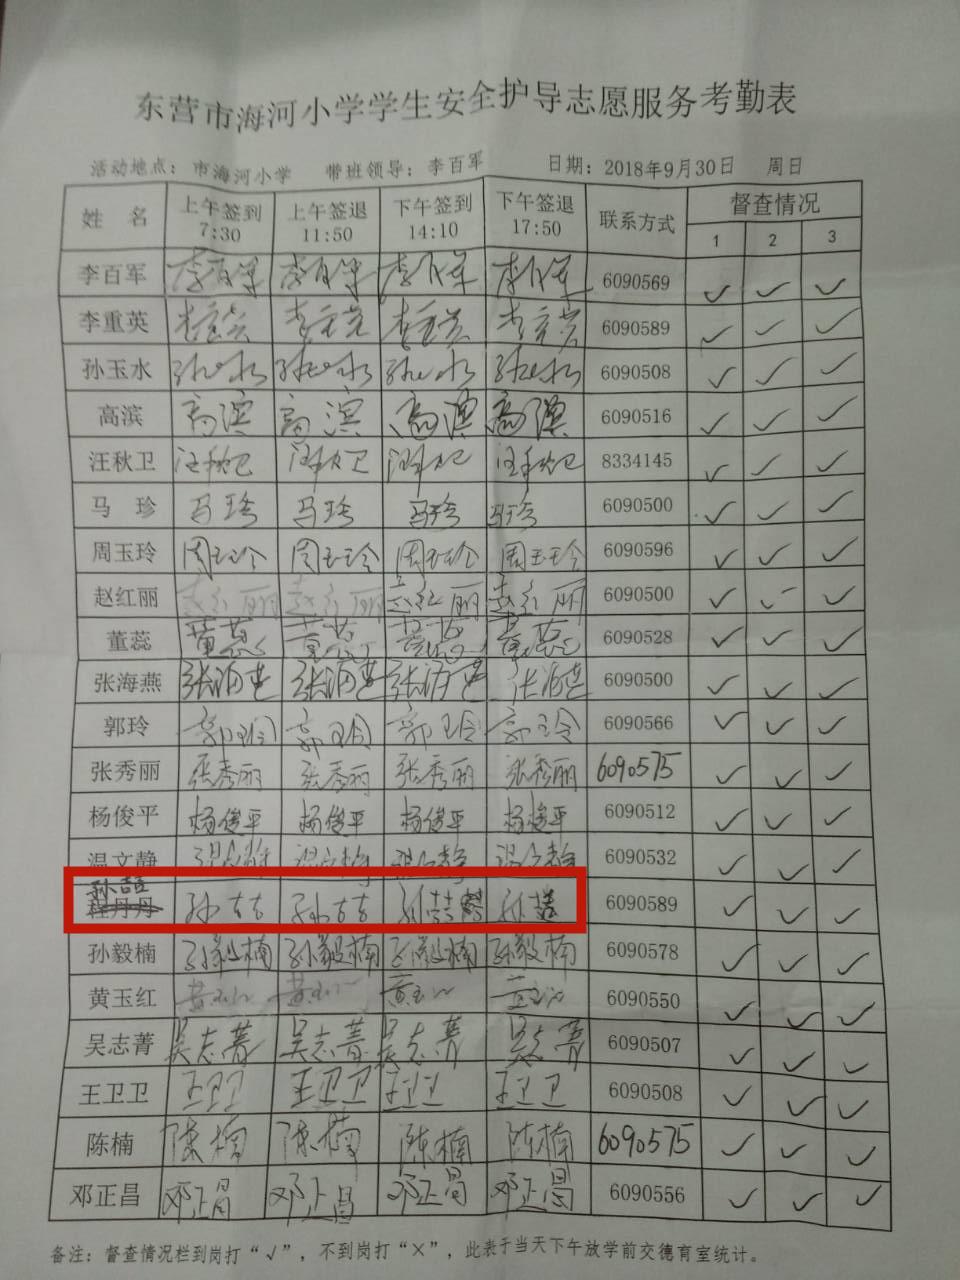 东营市海河小学学生安全护导志愿服务考勤表
活动地点：市海河小学 带班领导：李百军 日期：2018年9月30日 周日
姓 名 上午签到 7:30 上午签退 11:50 下午签到 14:10 下午签退 17:50 联系方式 督查情况
1 2 3
李百军 李百军 李百军 李百军 李百军 6090569 ✓ ✓ ✓
李重英 李重英 李重英 李重英 李重英 6090589 ✓ ✓ ✓
孙玉水 孙玉水 孙玉水 孙玉水 孙玉水 6090508 ✓ ✓ ✓
高滨 高滨 高滨 高滨 高滨 6090516 ✓ ✓ ✓
汪秋卫 汪秋卫 汪秋卫 汪秋卫 汪秋卫 8334145 ✓ ✓ ✓
马 珍 马珍 马珍 马珍 马珍 6090500 ✓ ✓ ✓
周玉玲 周玉玲 周玉玲 周玉玲 周玉玲 6090596 ✓ ✓ ✓
赵红丽 赵红丽 赵红丽 赵红丽 赵红丽 6090500 ✓ ✓ ✓
董蕊 董蕊 董蕊 董蕊 董蕊 6090528 ✓ ✓ ✓
张海燕 张海燕 张海燕 张海燕 张海燕 6090500 ✓ ✓ ✓
郭玲 郭玲 郭玲 郭玲 郭玲 6090566 ✓ ✓ ✓
张秀丽 张秀丽 张秀丽 张秀丽 张秀丽 6090575 ✓ ✓ ✓
杨俊平 杨俊平 杨俊平 杨俊平 杨俊平 6090512 ✓ ✓ ✓
温文静 温文静 温文静 温文静 温文静 6090532 ✓ ✓ ✓
孙喆
程丹丹 孙 孙 孙 孙 6090589 ✓ ✓ ✓
孙毅楠 孙毅楠 孙毅楠 孙毅楠 孙毅楠 6090578 ✓ ✓ ✓
黄玉红 黄玉红 黄玉红 黄玉红 黄玉红 6090550 ✓ ✓ ✓
吴志菁 吴志菁 吴志菁 吴志菁 吴志菁 6090507 ✓ ✓ ✓
王卫卫 王卫卫 王卫卫 王卫卫 王卫卫 6090508 ✓ ✓ ✓
陈楠 陈楠 陈楠 陈楠 陈楠 6090575 ✓ ✓ ✓
邓正昌 邓正昌 邓正昌 邓正昌 邓正昌 6090556 ✓ ✓ ✓
备注：督查情况栏到岗打“√”，不到岗打“×”，此表于当天下午放学前交德育室统计。